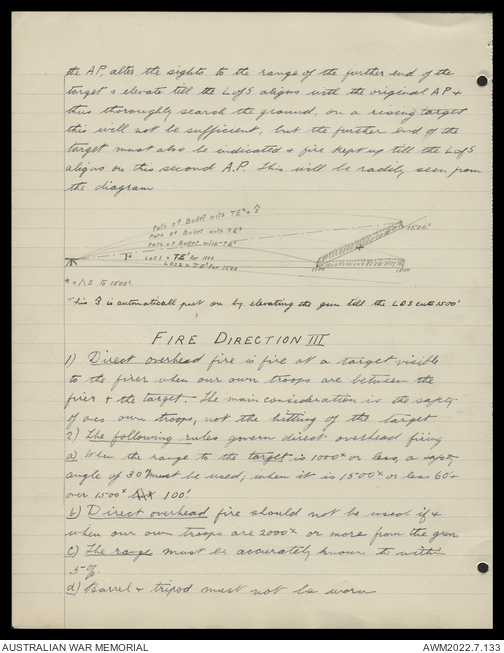 the AP, alter the sights to the range of the further end of the
target & elevate till the L of S aligns with the original AP &
thus thoroughly search the ground, on a rising target
this will not be sufficient, but the further end of the
target must also be indicated & fire kept up till the L of S
aligns on this second A.P. This will be readily seen from
the diagram
Path of Bullet with TE² & Ŝ
path of Bullet with TE²
path of Bullet with TE'
LOS 1 = TE' for 1100
LOS 2 = TE² for 1500
1500'
1100
1500
This Ŝ is automatically put on by elevating the gun till the LOS cuts 1500'
FIRE DIRECTION III
1) Direct overhead fire is fire at a target visible
to the firer when our own troops are between the
firer & the target — The main consideration is the safety
of ones own troops, not the hitting of the target
2) The following rules govern direct overhead firing
a) When the range to the target is 1000ˣ or less, a safety
angle of 30' must be used; when it is 1500ˣ or less 60' &
over 1500ˣ 100'
b) Direct overhead fire should not be used if &
when our own troops are 2000ˣ or more from the gun
c) The range must be accurately known to within
5%.
d) Barrel & tripod must not be worn
AUSTRALIAN WAR MEMORIAL
AWM2022.7.133